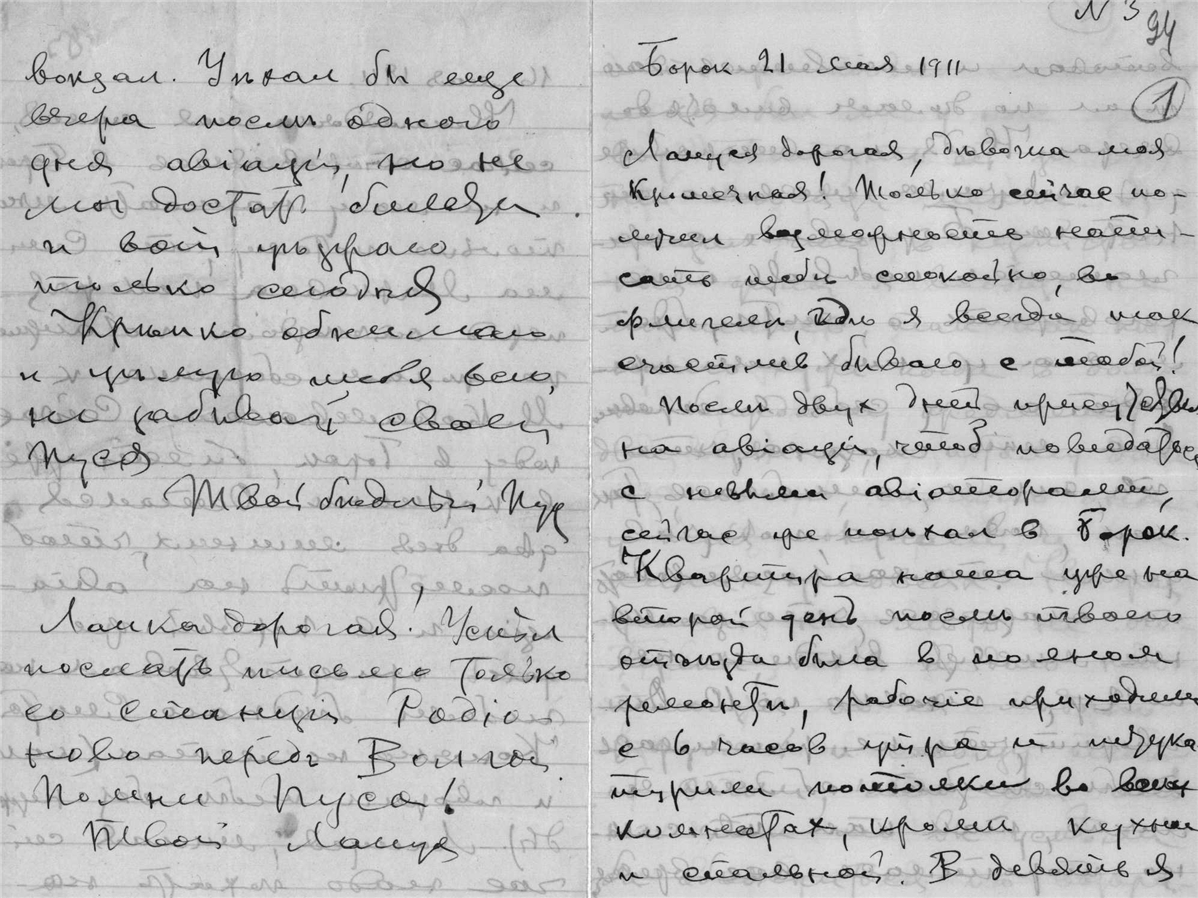 вокзал. Уѣхал бы еще
вчера послѣ одного
дня авіаціи, но не
мог достать билета
и вот уѣзжаю
только сегодня
Крѣпко обнимаю
и цѣлую тебя всю,
не забывай своего
Пуся
Твой бѣдный Пус
дорогая! Успѣл
послать письмо только
со станціи Родіо
ново перед Волгой.
Помни Пуса!
Твой
N 3
94
Борок 21 мая 1911
1
дорогая, дѣвочка моя
! Только сейчас по-
лучил возможность напи-
сать тебѣ спокойно, во
флигелѣ, гдѣ я всегда так
счастлив бываю с тобой!
Послѣ двух дней
на авіаціи, чтоб повидаться
с новыми авіаторами,
сейчас же поѣхал в Борок.
Квартира наша уже на
второй день послѣ твоего
отъѣзда была в полном
ремонтѣ, рабочіе приходили
с 6 часов утра и штука
турили потолки во всѣх
комнатах, кромѣ кухни
и спальной. В девять я